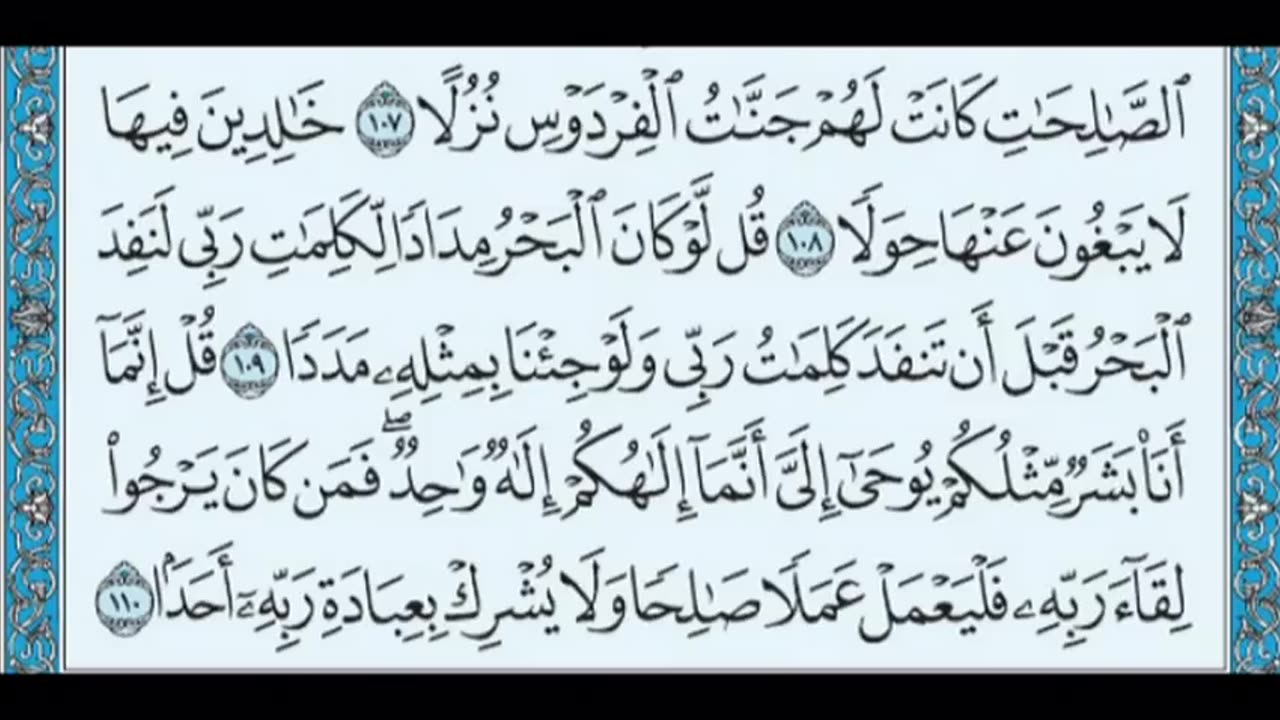 ٱلصَّـٰلِحَـٰتِ كَانَتْ لَهُمْ جَنَّـٰتُ ٱلْفِرْدَوْسِ نُزُلًا ١٠٧ خَـٰلِدِينَ فِيهَا
لَا يَبْغُونَ عَنْهَا حِوَلًا ١٠٨ قُل لَّوْ كَانَ ٱلْبَحْرُ مِدَادًا لِّكَلِمَـٰتِ رَبِّى لَنَفِدَ
ٱلْبَحْرُ قَبْلَ أَن تَنفَدَ كَلِمَـٰتُ رَبِّى وَلَوْ جِئْنَا بِمِثْلِهِۦ مَدَدًا ١٠٩ قُلْ إِنَّمَآ
أَنَا۠ بَشَرٌ مِّثْلُكُمْ يُوحَىٰٓ إِلَىَّ أَنَّمَآ إِلَـٰهُكُمْ إِلَـٰهٌ وَٰحِدٌ ۖ فَمَن كَانَ يَرْجُوا۟
لِقَآءَ رَبِّهِۦ فَلْيَعْمَلْ عَمَلًا صَـٰلِحًا وَلَا يُشْرِكْ بِعِبَادَةِ رَبِّهِۦٓ أَحَدًۢا ١١٠